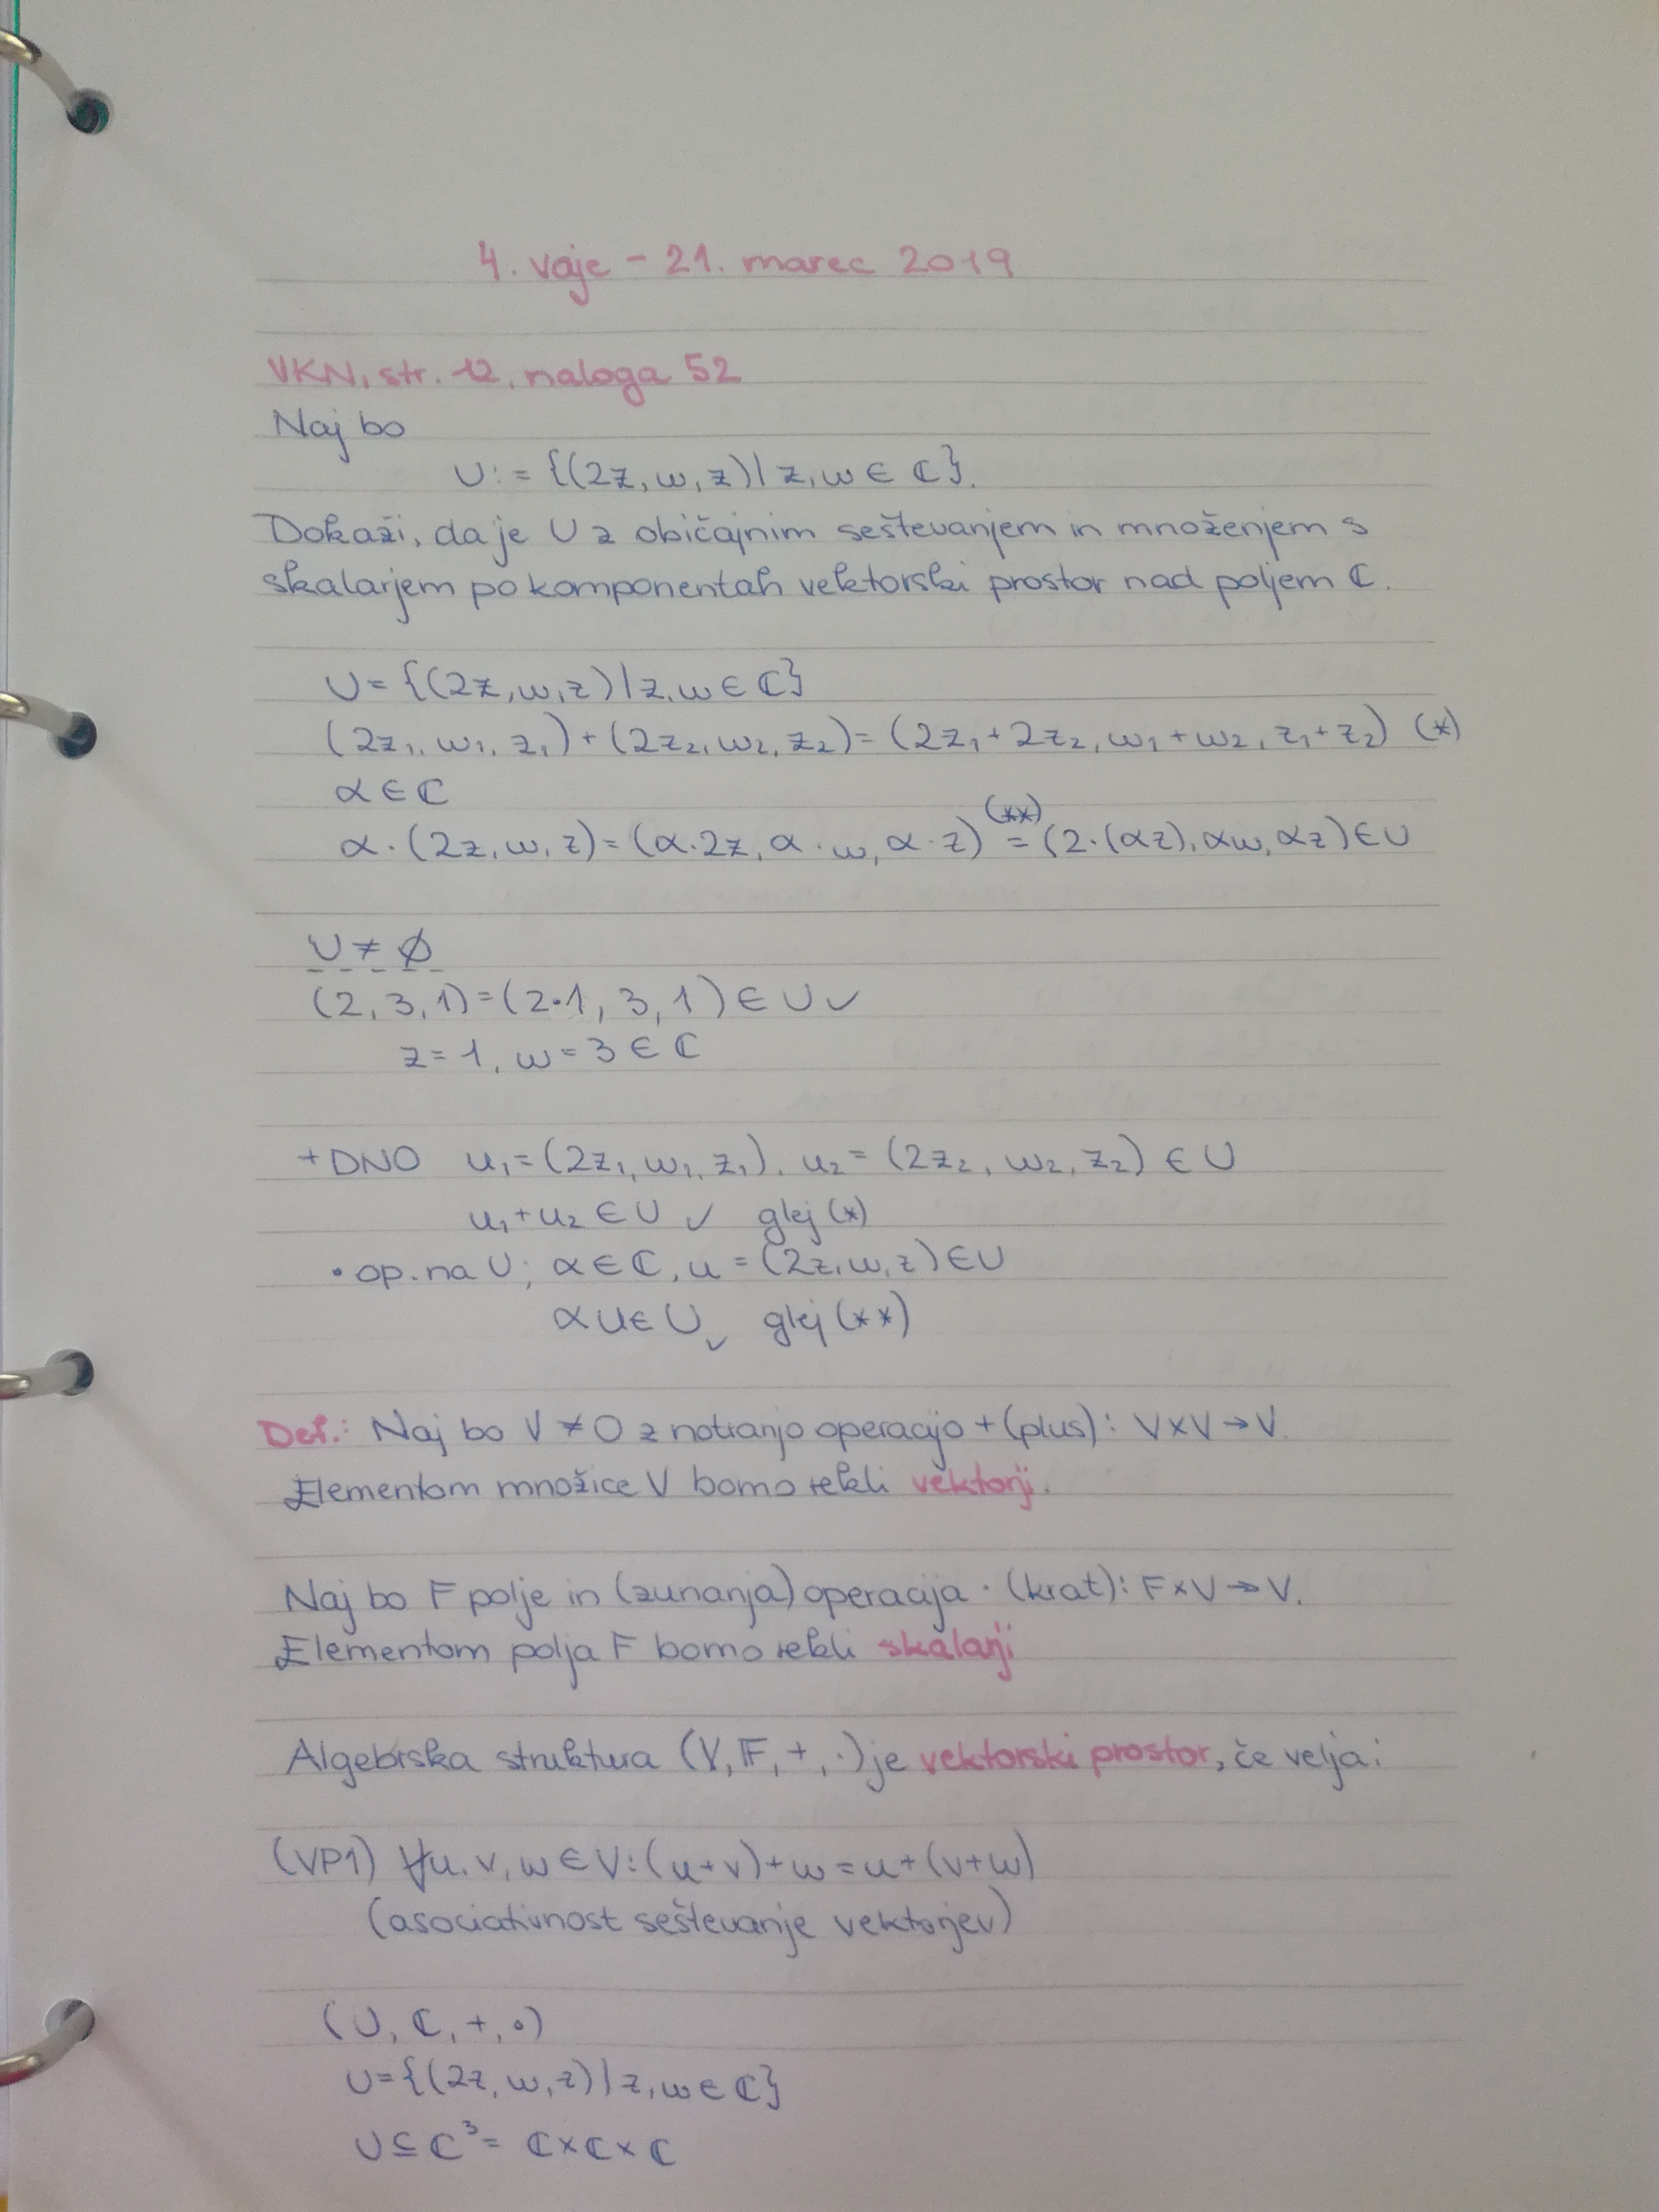 4. vaje - 21. marec 2019
VKN, str. 12, naloga 52
Naj bo
U := {(2z, w, z) | z, w ∈ ℂ}.
Dokaži, da je U z običajnim seštevanjem in množenjem s
skalarjem po komponentah vektorski prostor nad poljem ℂ.
U = {(2z, w, z) | z, w ∈ ℂ}
(2z₁, w₁, z₁) + (2z₂, w₂, z₂) = (2z₁ + 2z₂, w₁ + w₂, z₁ + z₂) (*)
α ∈ ℂ
α · (2z, w, z) = (α · 2z, α · w, α · z) (**)= (2 · (αz), αw, αz) ∈ U
U ≠ ∅
(2, 3, 1) = (2·1, 3, 1) ∈ U ✓
z = 1, w = 3 ∈ ℂ
+ DNO u₁ = (2z₁, w₁, z₁), u₂ = (2z₂, w₂, z₂) ∈ U
u₁ + u₂ ∈ U ✓ glej (*)
• op. na U; α ∈ ℂ, u = (2z, w, z) ∈ U
αu ∈ U ✓ glej (**)
Def.: Naj bo V ≠ O z notranjo operacijo + (plus): V×V → V.
Elementom množice V bomo rekli vektorji.
Naj bo F polje in (zunanja) operacija · (krat): F×V → V.
Elementom polja F bomo rekli skalarji
Algebrska struktura (V, 𝔽, +, ·) je vektorski prostor, če velja:
(VP1) ∀u, v, w ∈ V: (u + v) + w = u + (v + w)
(asociativnost seštevanje vektorjev)
(U, ℂ, +, ∘)
U = {(2z, w, z) | z, w ∈ ℂ}
U ⊆ ℂ³ = ℂ × ℂ × ℂ